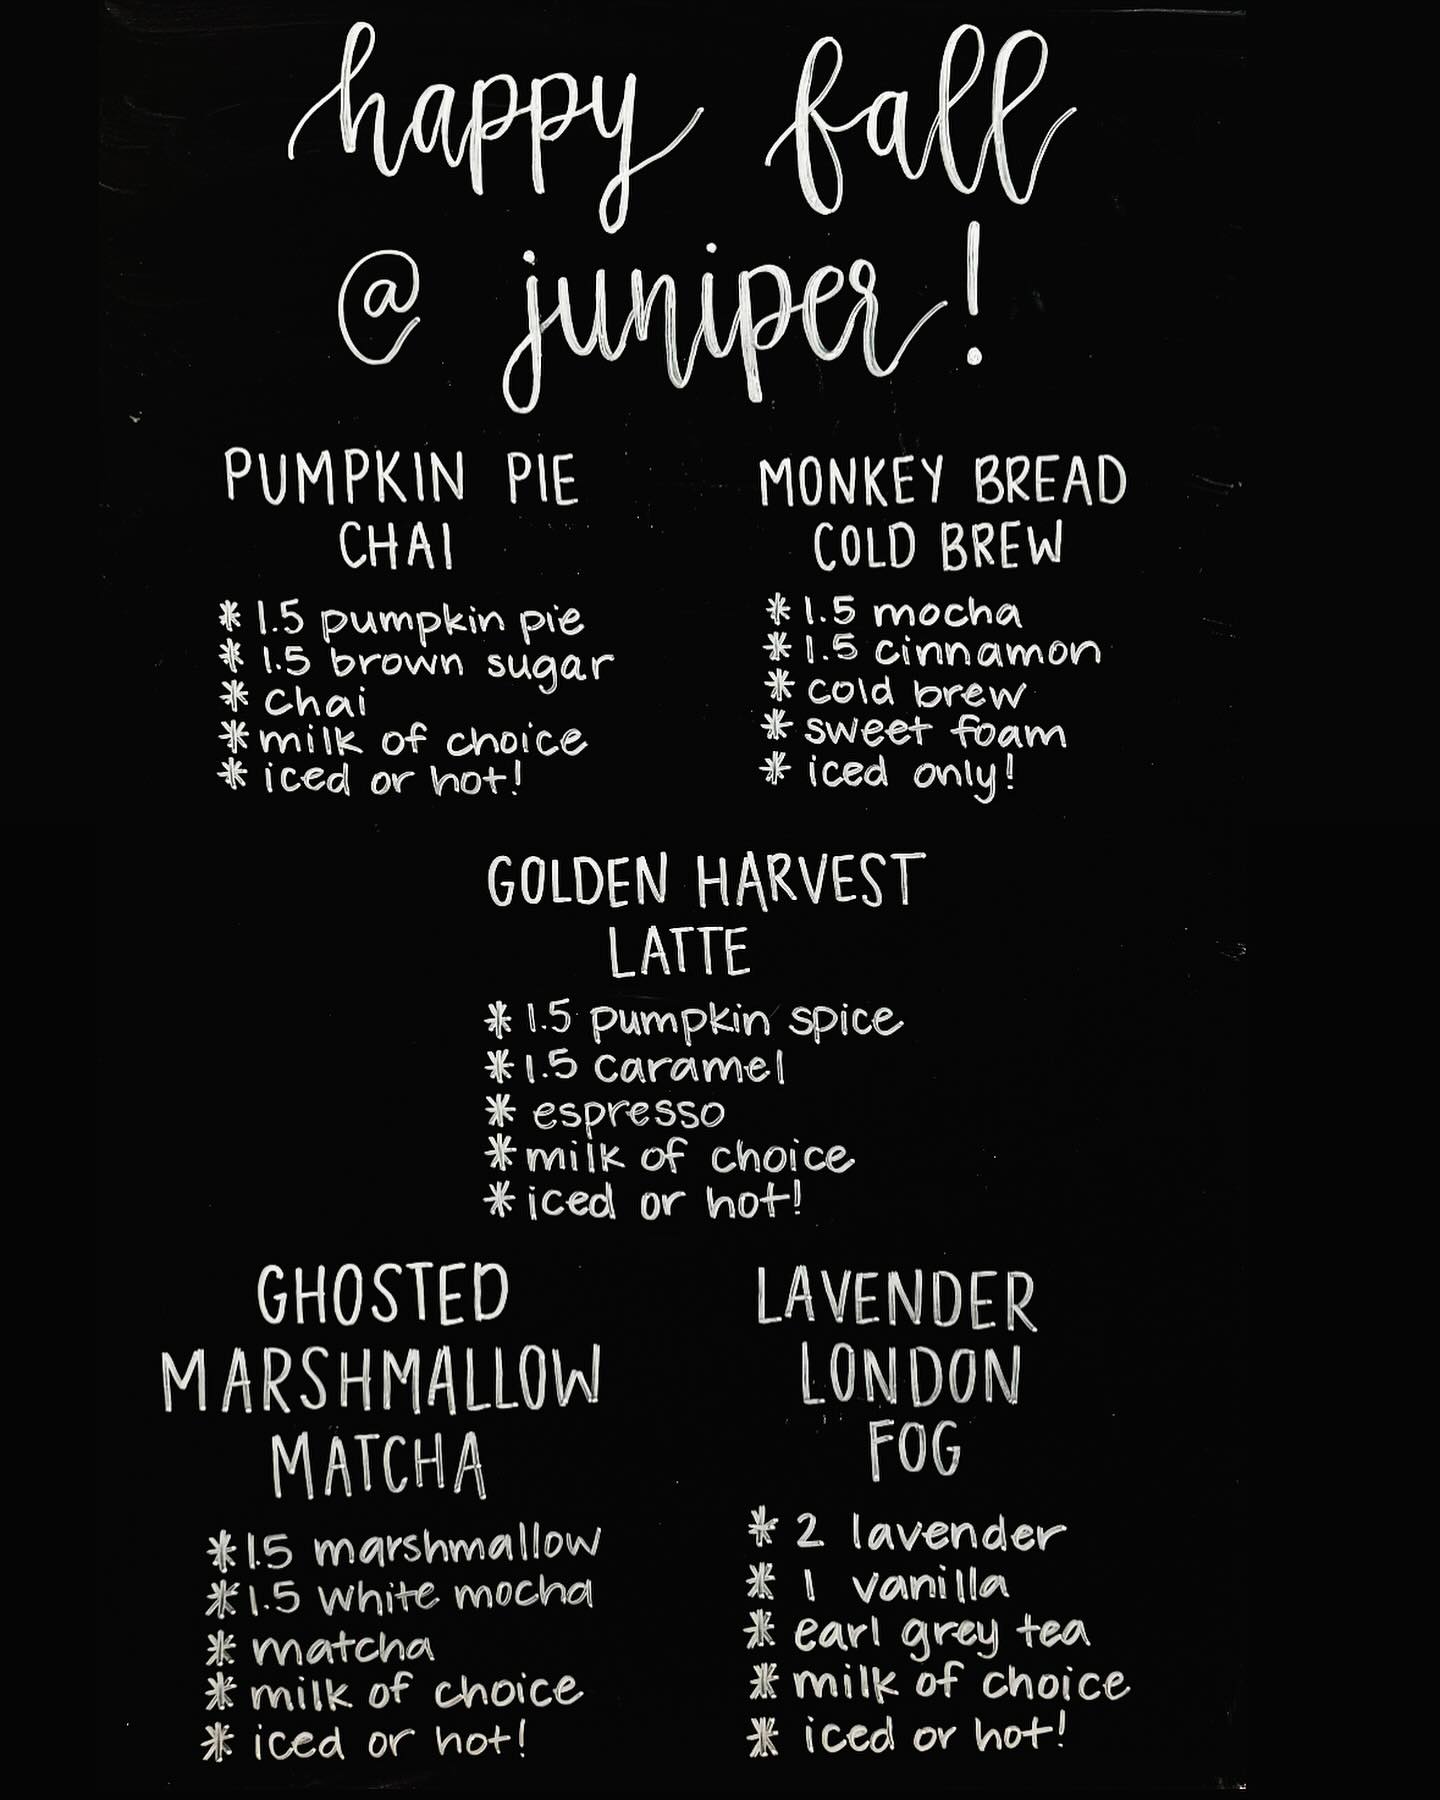 happy fall
@ juniper!
PUMPKIN PIE
CHAI
* 1.5 pumpkin pie
* 1.5 brown sugar
* chai
* milk of choice
* iced or hot!
MONKEY BREAD
COLD BREW
* 1.5 mocha
* 1.5 cinnamon
* cold brew
* sweet foam
* iced only!
GOLDEN HARVEST
LATTE
* 1.5 pumpkin spice
* 1.5 caramel
* espresso
* milk of choice
* iced or hot!
GHOSTED
MARSHMALLOW
MATCHA
* 1.5 marshmallow
* 1.5 white mocha
* matcha
* milk of choice
* iced or hot!
LAVENDER
LONDON
FOG
* 2 lavender
* 1 vanilla
* earl grey tea
* milk of choice
* iced or hot!